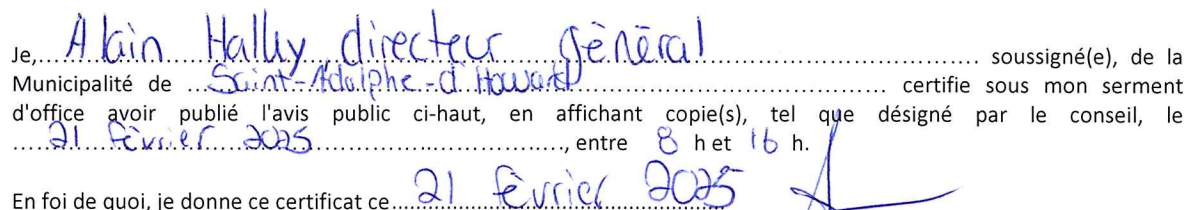 Je,....Alain Hallky, directeur général.... soussigné(e), de la
Municipalité de ....Saint-Adolphe-d'Howard.... certifie sous mon serment
d'office avoir publié l'avis public ci-haut, en affichant copie(s), tel que désigné par le conseil, le
....21 février 2025...., entre 8 h et 16 h.
En foi de quoi, je donne ce certificat ce....21 février 2025....